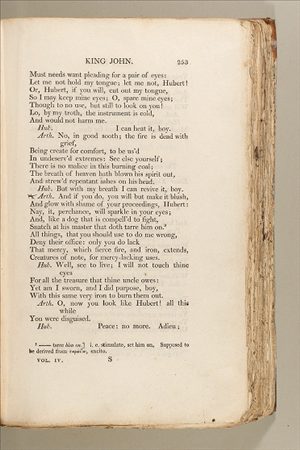 KING JOHN. 253
Must needs want pleading for a pair of eyes:
Let me not hold my tongue; let me not, Hubert!
Or, Hubert, if you will, cut out my tongue,
So I may keep mine eyes; O, spare mine eyes;
Though to no use, but still to look on you!
Lo, by my troth, the instrument is cold,
And would not harm me.
Hub. I can heat it, boy.
Arth. No, in good sooth; the fire is dead with
grief,
Being create for comfort, to be us'd
In undeserv'd extremes: See else yourself;
There is no malice in this burning coal;
The breath of heaven hath blown his spirit out,
And strew'd repentant ashes on his head.
Hub. But with my breath I can revive it, boy.
Arth. And if you do, you will but make it blush,
And glow with shame of your proceedings, Hubert:
Nay, it, perchance, will sparkle in your eyes;
And, like a dog that is compell'd to fight,
Snatch at his master that doth tarre him on.³
All things, that you should use to do me wrong,
Deny their office: only you do lack
That mercy, which fierce fire, and iron, extends,
Creatures of note, for mercy-lacking uses.
Hub. Well, see to live; I will not touch thine
eyes
For all the treasure that thine uncle owes:
Yet am I sworn, and I did purpose, boy,
With this same very iron to burn them out.
Arth. O, now you look like Hubert! all this
while
You were disguised.
Hub. Peace: no more. Adieu;
—— tarre him on] i. e. stimulate, set him on. Supposed to
be derived from excite.
VOL. IV. S